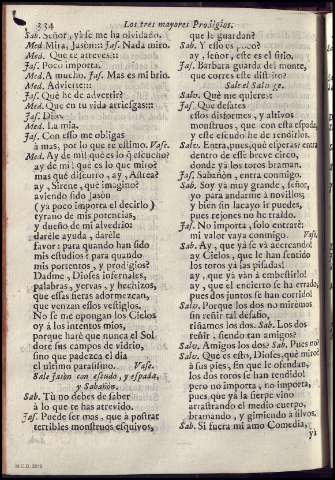 234 Los tres mayores Prodigios.
Sab. Señor, yà se me ha olvidado.
Med. Mira, Jason::: Jas. Nada miro.
Med. Que te atreves:::
Jas. Poco importa.
Med. A mucho. Jas. Mas es mi brio.
Med. Advierte:::
Jas. Què he de advertir?
Med. Que en tu vida arriesgas:::
Jas. Di.
Med. La mia.
Jas. Con esso me obligas
à mas, por lo que te estimo. Vase.
Med. Ay de mi! què es lo q̃ escucho?
ay de mi! què es lo que miro?
mas què discurro, ay, Astrea?
ay, Sirene, què imagino?
aviendo sido Jason
(ya poco importa el decirlo)
tyrano de mis potencias,
y dueño de mi alvedrio:
darèle ayuda, darèle
favor: para quando han sido
mis estudios? para quando
mis portentos, y prodigios?
Dadme, Dioses infernales,
palabras, yervas, y hechizos,
que essas fieras adormezcan,
que venzan essos vestiglos.
No se me opongan los Cielos
oy à los intentos mios,
porque harè que nunca el Sol
dore sus campos de vidrio,
sino que padezca el dia
el ultimo parasismo. Vase.
Sale Jason con escudo, y espada,
y Sabañon.
Sab. Tù no debes de saber
à lo que te has atrevido.
Jas. Puede ser mas, que à postrar
terribles monstruos esquivos,
que le guardan?
Sab. Y esso es poco?
ay, señor, este es el sitio.
Jas. Barbara guarda del monte,
que corres este distrito?
Salvage. Què me quieres?
Jas. Que desates
essos disformes, y altivos
monstruos, que con esta espada,
y este escudo he de rendirlos.
Entra, pues, què esperas? entra
dentro de esse breve circo,
donde yà los toros braman.
Jas. Sabañon, entra conmigo.
Sab. Soy yà muy grande, señor,
yo para andarme à novillos;
y bien sin lacayo is puedes,
pues rejones no he traldo.
Jas. No importa, solo entrarè:
mi valor vaya conmigo. Vase.
Sab. Ay, que yà se và acercando!
ay Cielos, que le han sentido
los toros yà las pisadas!
ay, que yà vàn à embestirlo!
ay, que el encierro se ha errado,
pues dos juntos se han corrido!
Porque los dos no miremos
sin reñir tal desafio,
riñamos los dos. Sab. Los dos
reñir, siendo tan amigos?
Amigos los dos? Sab. Pues no?
Què es esto, Dioses, què miro?
à sus pies, sin que le ofendan,
los dos toros se han tendido!
pero no importa, no importa,
pues que yà la sierpe vino
arrastrando el medio cuerpo,
bramando, y gimiendo à silvos.
Sab. Si fuera mi amo Comedia,
yà